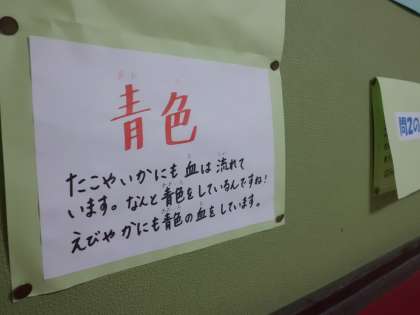 青色
たこやいかにも血は流れて
います。なんと青色をしているんですね!
えびやかにも青色の血をしています。
問2の